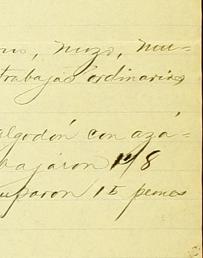 mozo, mu-
trabajas ordinarias
algodón con azá-
bajáron 148
uparon 15 peones